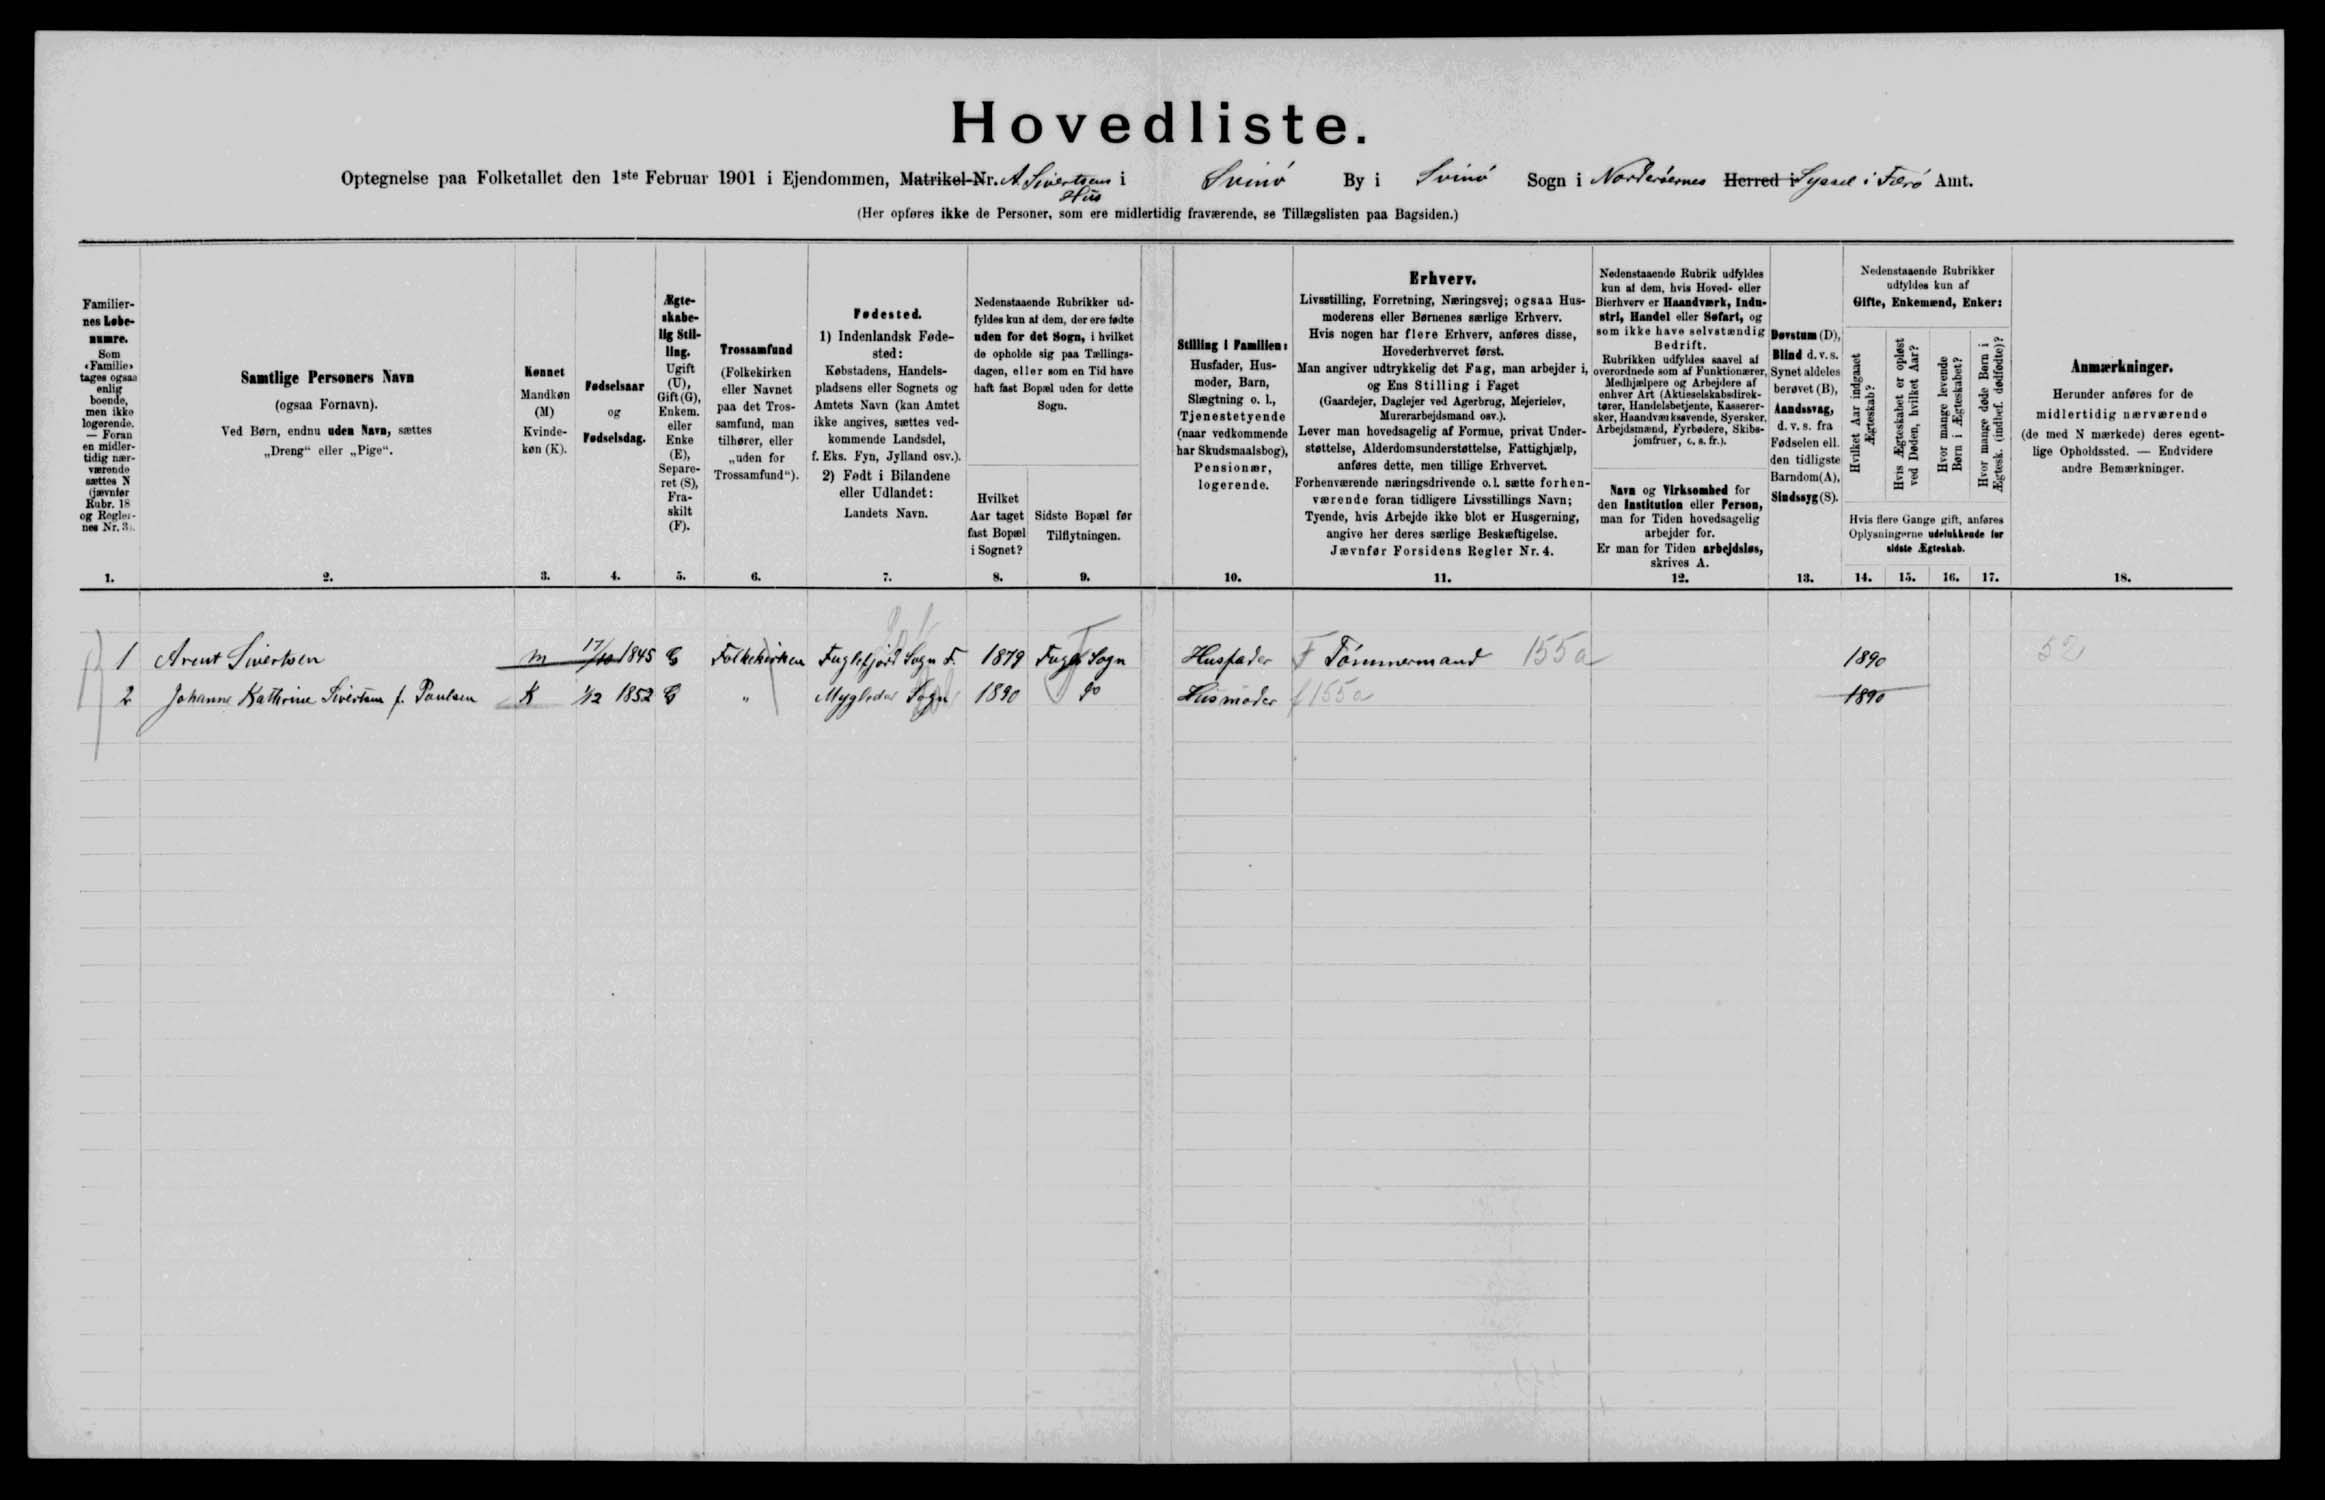 Hovedliste.
Optegnelse paa Folketallet den 1ste Februar 1901 i Ejendommen, Matrikel-Nr. A. Sivertsens Hus i Svinø By i Svinø Sogn i Norderøernes Herred i Syssel i Færø Amt.
(Her opføres ikke de Personer, som ere midlertidig fraværende, se Tillægslisten paa Bagsiden.)
Familier-
nes Løbe-
numre.
Som
«Familie»
tages ogsaa
enlig
boende,
men ikke
logerende.
— Foran
en midler-
tidig nær-
værende
sættes N
(jævnfør
Rubr. 18
og Regler-
nes Nr. 3).
1.
Samtlige Personers Navn
(ogsaa Fornavn).
Ved Børn, endnu uden Navn, sættes
„Dreng“ eller „Pige“.
2.
Kønnet
Mandkøn
(M)
Kvinde-
køn (K).
3.
Fødselsaar
og
Fødselsdag.
4.
Ægte-
skabe-
lig Stil-
ling.
Ugift
(U),
Gift (G),
Enkem.
eller
Enke
(E),
Separe-
ret (S),
Fra-
skilt
(F).
5.
Trossamfund
(Folkekirken
eller Navnet
paa det Tros-
samfund, man
tilhører, eller
„uden for
Trossamfund“).
6.
Fødested.
1) Indenlandsk Føde-
sted:
Købstadens, Handels-
pladsens eller Sognets og
Amtets Navn (kan Amtet
ikke angives, sættes ved-
kommende Landsdel,
f. Eks. Fyn, Jylland osv.).
2) Født i Bilandene
eller Udlandet:
Landets Navn.
7.
Nedenstaaende Rubrikker ud-
fyldes kun af dem, der ere fødte
uden for det Sogn, i hvilket
de opholde sig paa Tællings-
dagen, eller som en Tid have
haft fast Bopæl uden for dette
Sogn.
Hvilket
Aar taget
fast Bopæl
i Sognet?
8.
Sidste Bopæl før
Tilflytningen.
9.
Stilling i Familien:
Husfader, Hus-
moder, Barn,
Slægtning o. l.,
Tjenestetyende
(naar vedkommende
har Skudsmaalsbog),
Pensionær,
logerende.
10.
Erhverv.
Livsstilling, Forretning, Næringsvej; ogsaa Hus-
moderens eller Børnenes særlige Erhverv.
Hvis nogen har flere Erhverv, anføres disse,
Hovederhvervet først.
Man angiver udtrykkelig det Fag, man arbejder i,
og Ens Stilling i Faget
(Gaardejer, Daglejer ved Agerbrug, Mejerielev,
Murerarbejdsmand osv.).
Lever man hovedsagelig af Formue, privat Under-
støttelse, Alderdomsunderstøttelse, Fattighjælp,
anføres dette, men tillige Erhvervet.
Forhenværende næringsdrivende o. l. sætte forhen-
værende foran tidligere Livsstillings Navn;
Tyende, hvis Arbejde ikke blot er Husgerning,
angive her deres særlige Beskæftigelse.
Jævnfør Forsidens Regler Nr. 4.
11.
Nedenstaaende Rubrik udfyldes
kun af dem, hvis Hoved- eller
Bierhverv er Haandværk, Indu-
stri, Handel eller Søfart, og
som ikke have selvstændig
Bedrift.
Rubrikken udfyldes saavel af
overordnede som af Funktionærer,
Medhjælpere og Arbejdere af
enhver Art (Aktieselskabsdirek-
tører, Handelsbetjente, Kasserer-
sker, Haandværkssvende, Syersker,
Arbejdsmænd, Fyrbødere, Skibs-
jomfruer, o. s. fr.).
Navn og Virksomhed for
den Institution eller Person,
man for Tiden hovedsagelig
arbejder for.
Er man for Tiden arbejdsløs,
skrives A.
12.
Døvstum (D),
Blind d. v. s.
Synet aldeles
berøvet (B),
Aandssvag,
d. v. s. fra
Fødselen ell.
den tidligste
Barndom (A),
Sindssyg (S).
13.
Nedenstaaende Rubrikker
udfyldes kun af
Gifte, Enkemænd, Enker:
Hvilket Aar indgaaet
Ægteskab?
Hvis Ægteskabet er opløst
ved Døden, hvilket Aar?
Hvor mange levende
Børn i Ægteskabet?
Hvor mange døde Børn i
Ægtesk. (indbef. dødfødte)?
Hvis flere Gange gift, anføres
Oplysningerne udelukkende for
sidste Ægteskab.
14. 15. 16. 17.
Anmærkninger.
Herunder anføres for de
midlertidig nærværende
(de med N mærkede) deres egent-
lige Opholdssted. — Endvidere
andre Bemærkninger.
18.
1 Arent Sivertsen m 17/10 1845 G Folkekirken Fuglefjord Sogn F. 1879 Fugle Sogn Husfader F Tömmermand 155a 1890 52
2 Johanne Kathrine Sivertsen f. Poulsen K 1/12 1852 G " Mygledal Sogn 1890 do Husmoder f 155a 1890